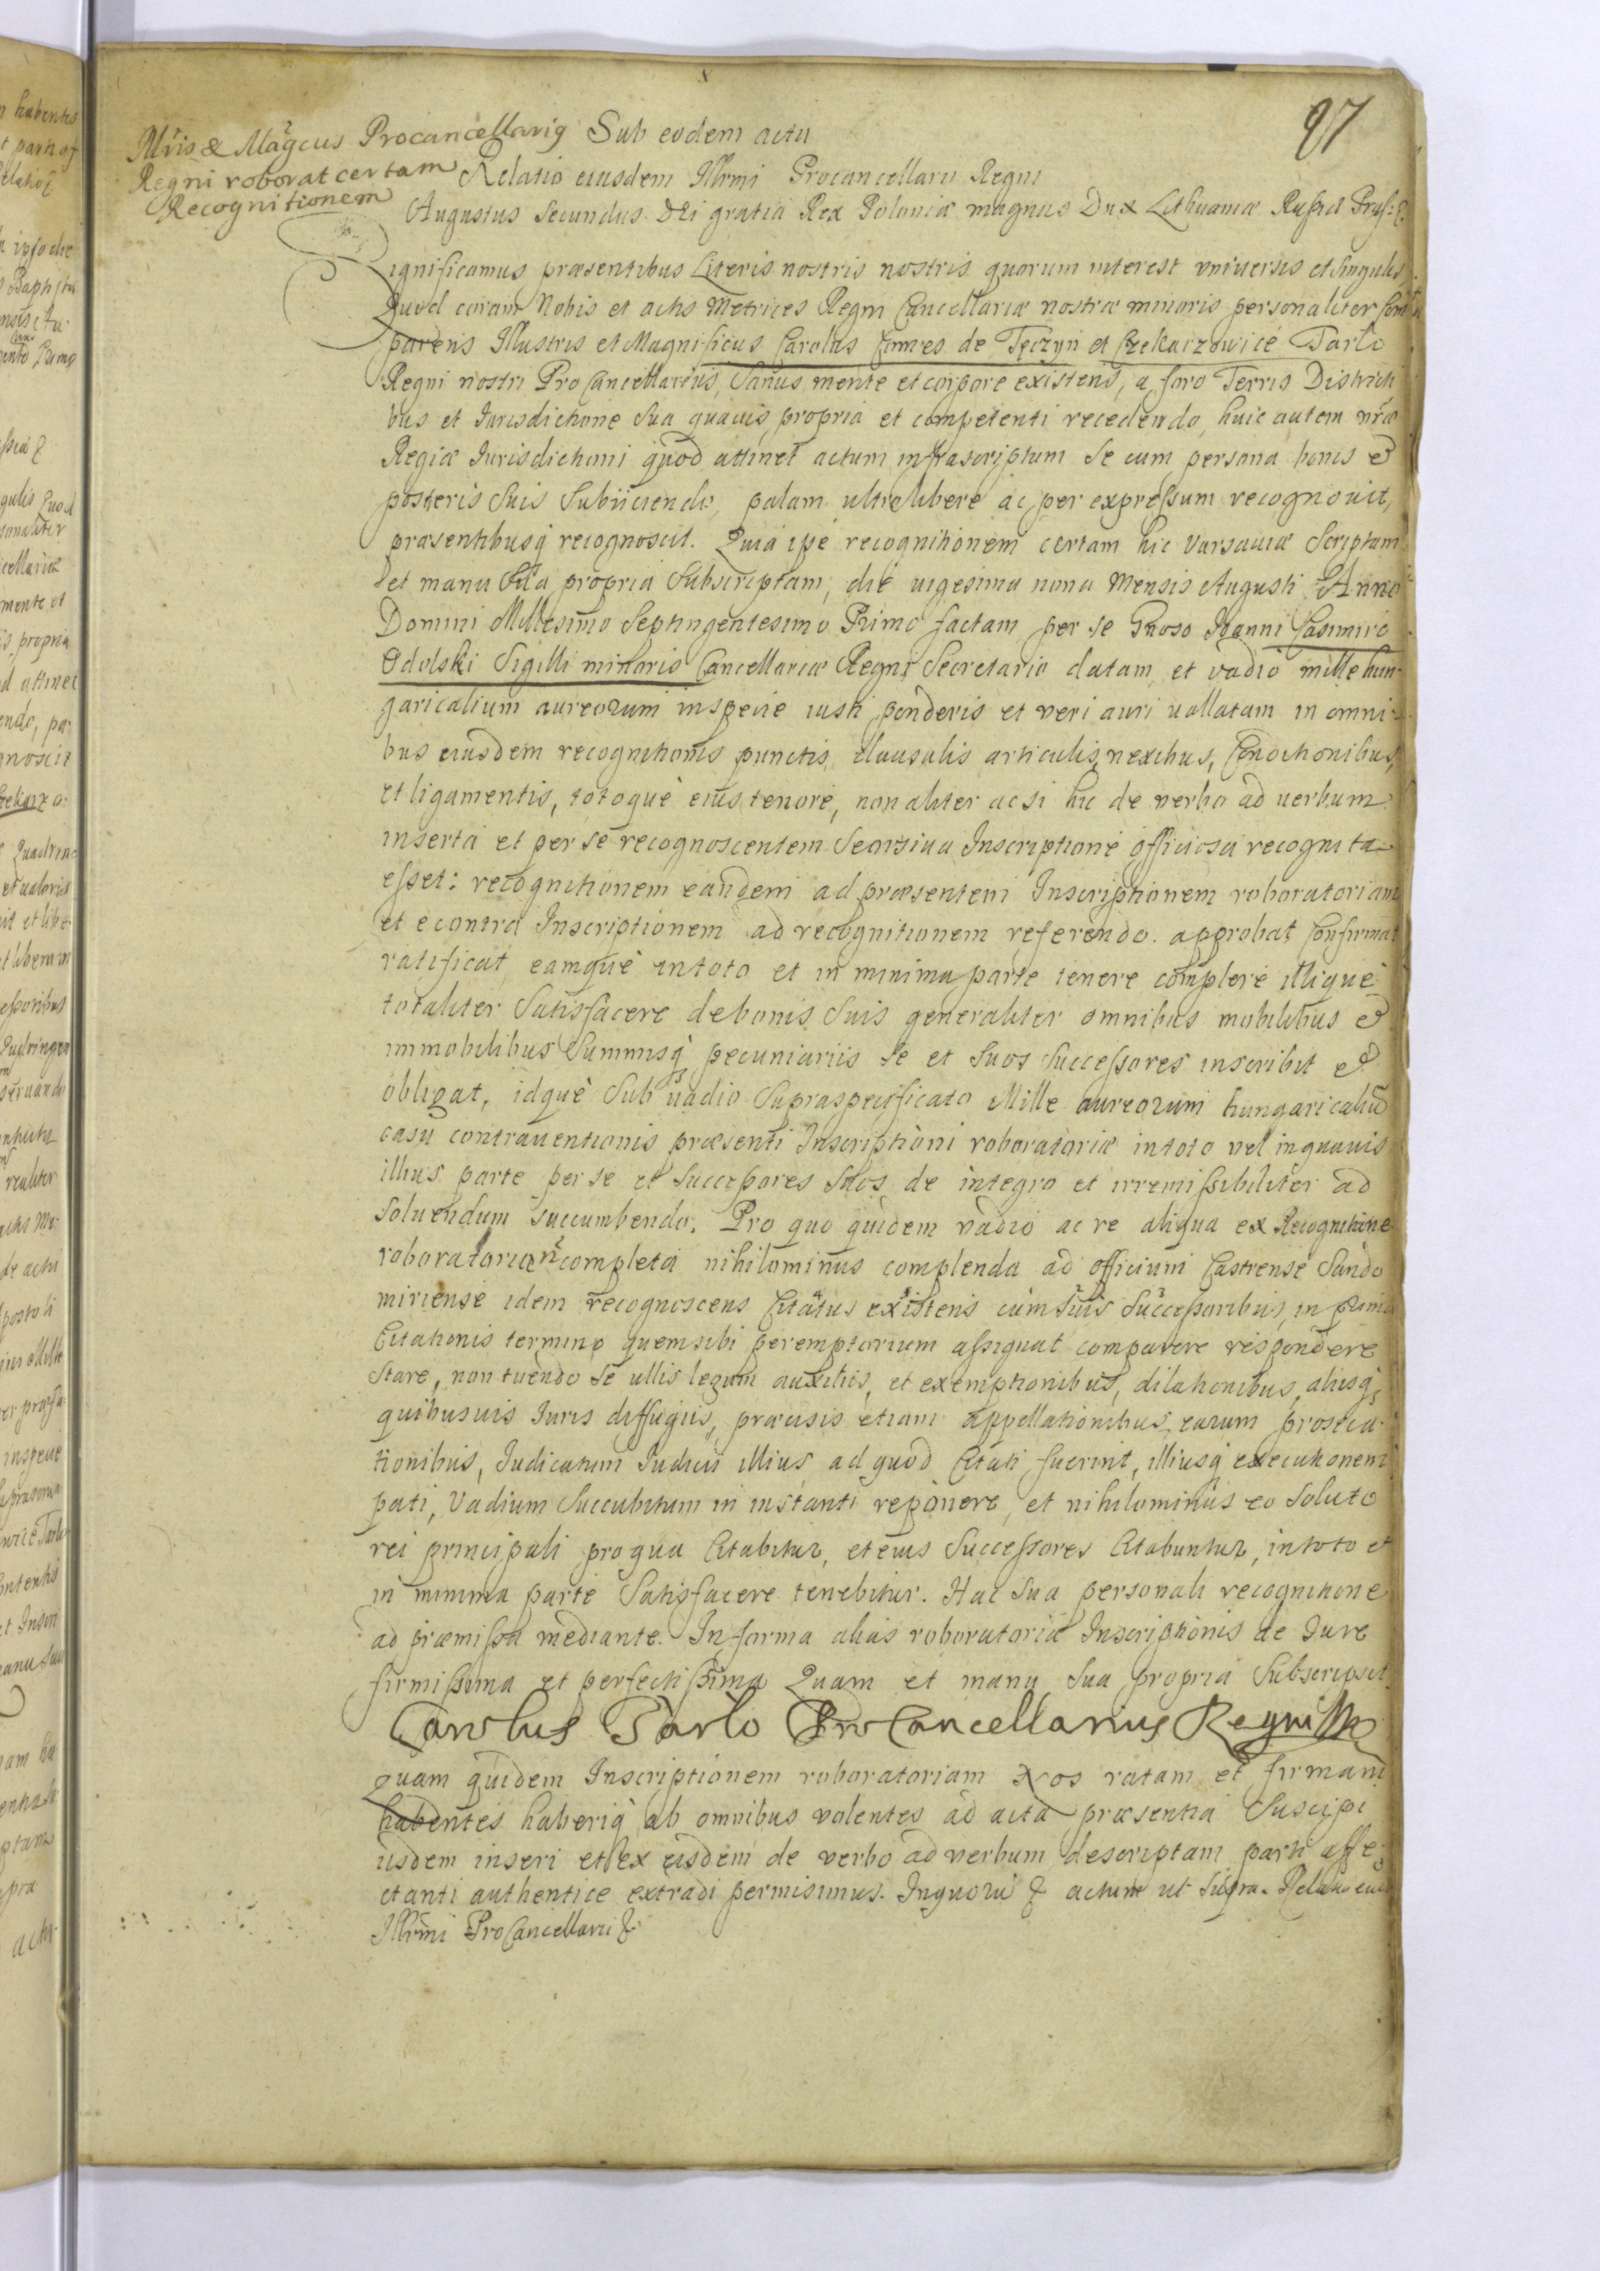 97
Illris & Magcus Procancellarig
Regni roborat certam
Recognitionem
Sub eodem actu
Relatio eiusdem Illrmi Procancellarii Regni
Augustus Secundus Dei gratia Rex Poloniæ magnus Dux Lithuaniæ Russiæ Prussiæ
Significamus præsentibus Literis nostris nostris quorum interest vniuersis et singulis
Quod coram Nobis et actis Metrices Regni Cancellariæ nostræ minoris personaliter com
parens Illustris et Magnificus Carolus Comes de Tęczyn et Czekarzowice Tarlo
Regni nostri ProCancellarius, Sanus mente et corpore existens, a foro Terris Districti
bus et Iurisdictione Sua quauis propria et competenti recedendo, huic autem nræ
Regiæ Iurisdictioni quod attinet actum infrascriptum Se cum persona bonis et
posteris Suis Subiiciendo, palam ultro libere ac per expressum recognouit,
præsentibusq recognoscit. Quia ipse recognitionem certam hic Varsauiæ Scriptam
et manu Sua propria Subscriptam, die uigesima nona Mensis Augusti Anno
Domini Millesimo Septingentesimo Primo factam per se Gnoso Ioanni Casimiro
Odolski Sigilli minoris Cancellariæ Regni Secretario datam et vadio mille hun-
garicalium aureorum in specie iusti ponderis et veri auri uallatam in omni-
bus eiusdem recognitionis punctis clausulis articulis, nexibus, Conditionibus,
et ligamentis, totoque eius tenore, non aliter ac si hic de verbo ad uerbum
inserta et per se recognoscentem Seorsiua Inscriptione officiosa recognita
esset: recognitionem eandem ad præsentem Inscriptionem roboratoriam
et e contra Inscriptionem ad recognitionem referendo. approbat Confirmat
ratificat eamque in toto et in minima parte tenere complere illique
totaliter Satisfacere de bonis Suis generaliter omnibus mobilibus et
immobilibus Summisq pecuniariis Se et Suos Successores inscribit et
obligat, idque Sub vadio Supraspecificato Mille aureorum hungaricaliū
casu contrauentionis præsenti Inscriptioni roboratoriæ in toto vel in quauis
illius parte per se et Successores Suos de integro et irremissibiliter ad
Soluendum succumbendo. Pro quo quidem vadio ac re aliqua ex Recognitione
roboratoria n completa nihilominus complenda ad officium Castrense Sando
miriense idem recognoscens Citatus existens cum Suis Successoribus, in primo
Citationis termino quem sibi peremptorium assignat comparere respondere
Stare, non tuendo Se ullis legum auxiliis, et exemptionibus, dilationibus, aliisq
quibusuis Iuris diffugiis, præcisis etiam appellationibus, earum prosecu-
tionibus, Iudicatum Iudicii illius ad quod Citati fuerint, illiusq executionem
pati, Vadium Succubitum in instanti reponere, et nihilominus eo Soluto
rei principali pro qua Citabitur, et eius Successores Citabuntur, in toto et
in minima parte Satisfacere tenebitur. Hac Sua personali recognitione
ad præmissa mediante. In forma alias roboratoriæ Inscriptionis de Iure
firmissima et perfectissima Quam et manu Sua propria Subscripsit.
Carolus Tarlo ProCancellarius Regni
Quam quidem Inscriptionem roboratoriam Nos ratam et firmam
habentes haberiq ab omnibus volentes ad acta præsentia Suscipi
iisdem inseri et ex eisdem de verbo ad verbum descriptam parti affe-
ctanti authentice extradi permisimus. In quorū & actum ut Supra. Relatio eius
Illrmi ProCancellarii &